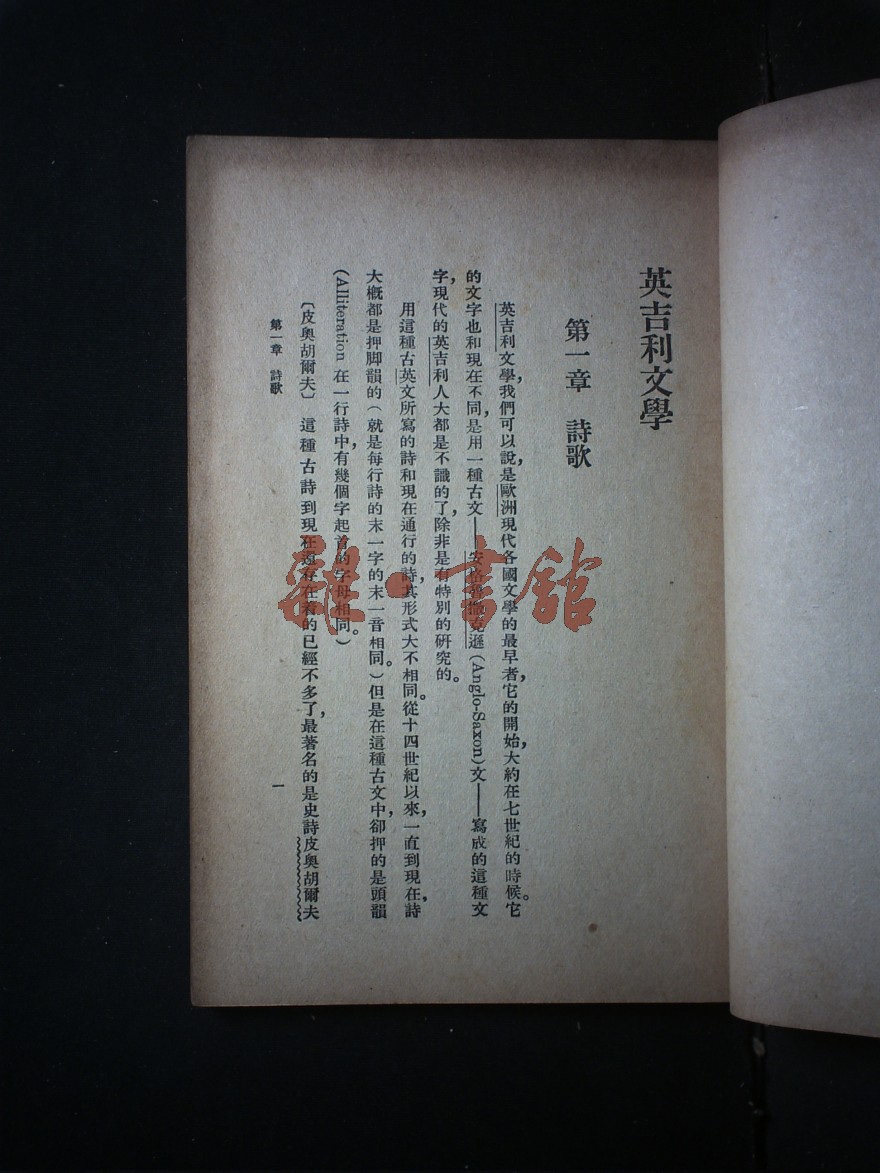 英吉利文學
第一章　詩歌
英吉利文學，我們可以說，是歐洲現代各國文學的最早者，它的開始，大約在七世紀的時候。它
的文字也和現在不同，是用一種古文——安格魯撒克遜(Anglo-Saxon)文——寫成的這種文
字，現代的英吉利人大都是不識的了，除非是有特別的研究的。
用這種古英文所寫的詩和現在通行的詩，其形式大不相同。從十四世紀以來，一直到現在，詩
大概都是押脚韻的（就是每行詩的末一字的末一音相同。）但是在這種古文中，卻押的是頭韻
(Alliteration 在一行詩中，有幾個字起首的字母相同。）
〔皮奧胡爾夫〕　這種古詩到現在還存在着的已經不多了，最著名的是史詩皮奧胡爾夫
第一章　詩歌
一
雜·書館